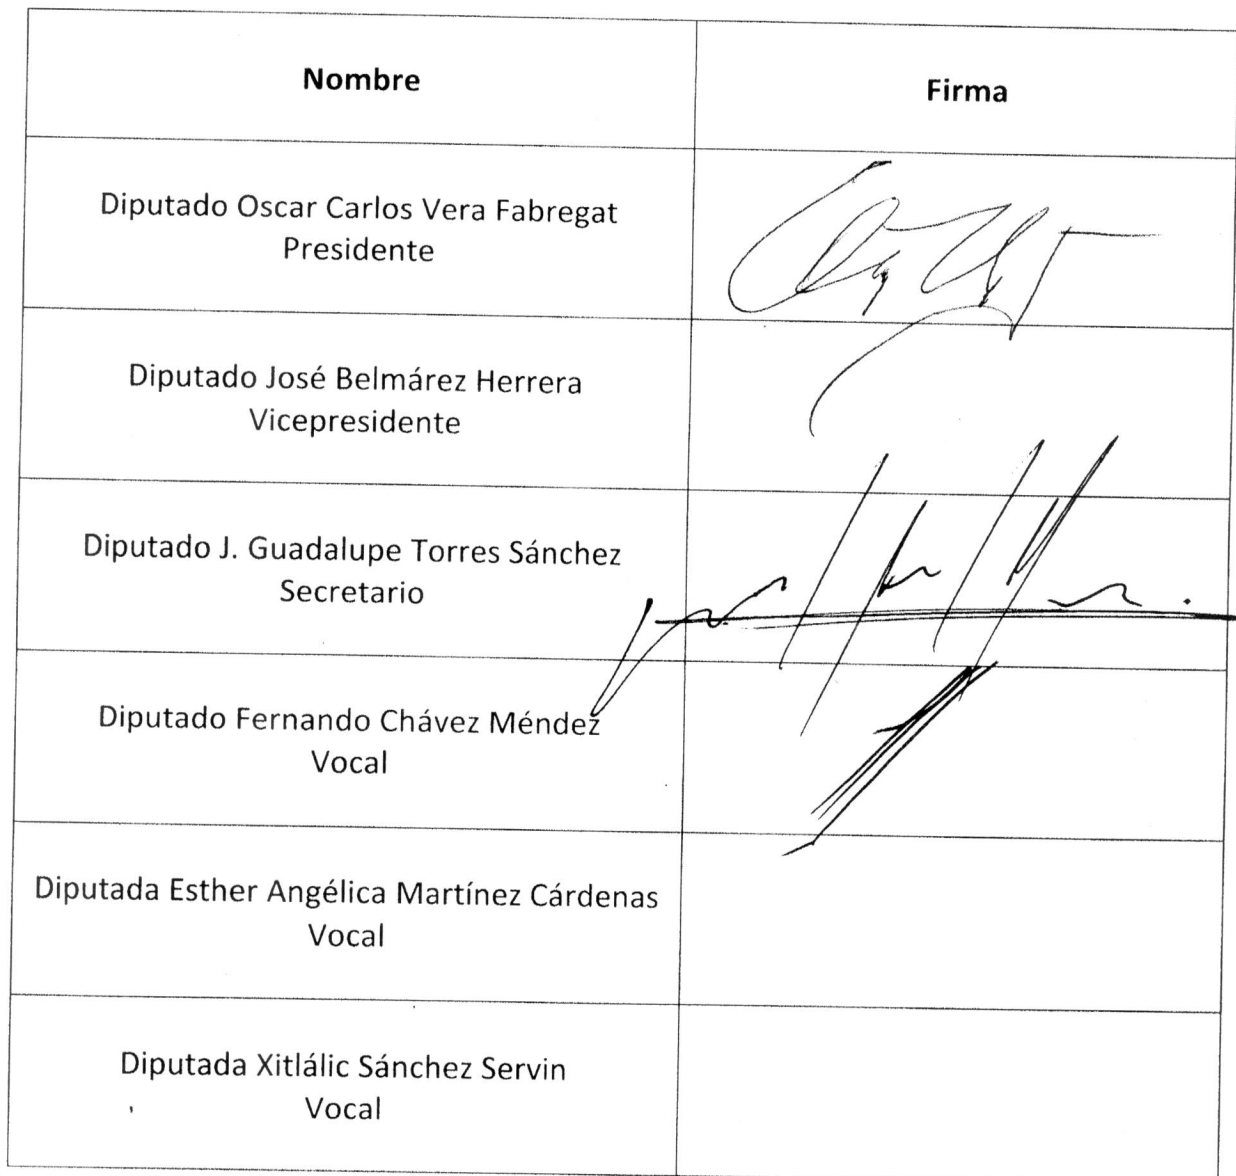 Nombre
Firma
Diputado Oscar Carlos Vera Fabregat
Presidente
Diputado José Belmárez Herrera
Vicepresidente
Diputado J. Guadalupe Torres Sánchez
Secretario
Diputado Fernando Chávez Méndez
Vocal
Diputada Esther Angélica Martínez Cárdenas
Vocal
Diputada Xitlálic Sánchez Servin
Vocal